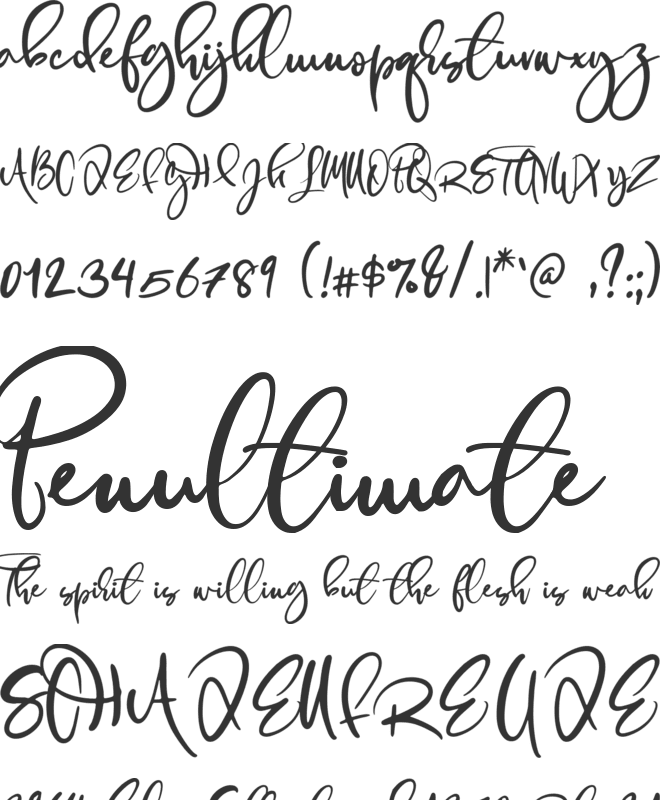 abcdefghijklmnopqrstuvwxyz
ABCDEFGHIJKLMNOPQRSTUVWXYZ
0123456789 (!#$%&/.|*'@ ,?:;)
Penultimate
The spirit is willing but the flesh is weak
SCHADENFREUDE